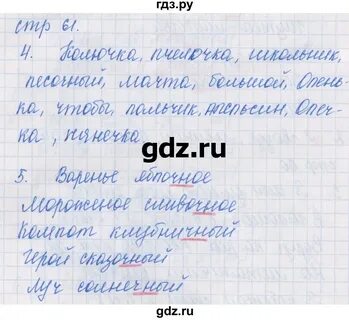 gdz.ru
стр 61.
4. Колючка, пчелочка, школьник,
песочный, мачта, большой, Олень-
ка, чтобы, пальчик, апельсин, Олеч-
ка, нянечка
gdz.ru
5. Варенье яблочное
Мороженое сливочное
Компот клубничный
Герой сказочный
Луч солнечный
gdz.ru